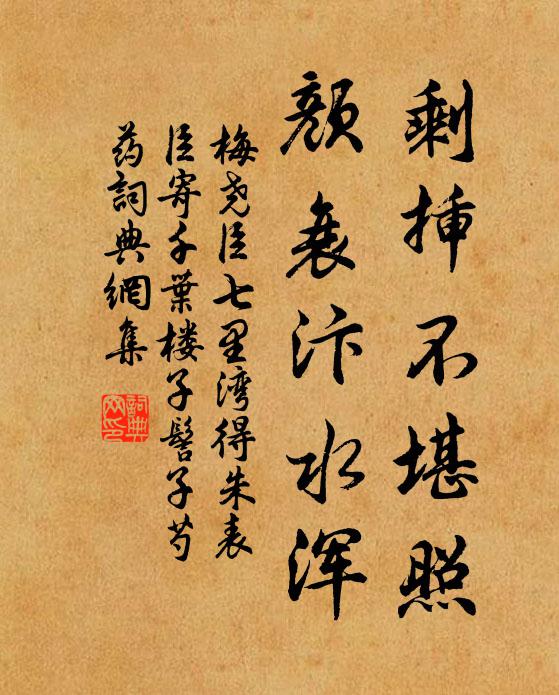 剩插不堪照
颜衰汴水浑
梅尧臣七里湾得朱表
臣寄千葉楼子髻子芍
药詞典網集
詞典
网印